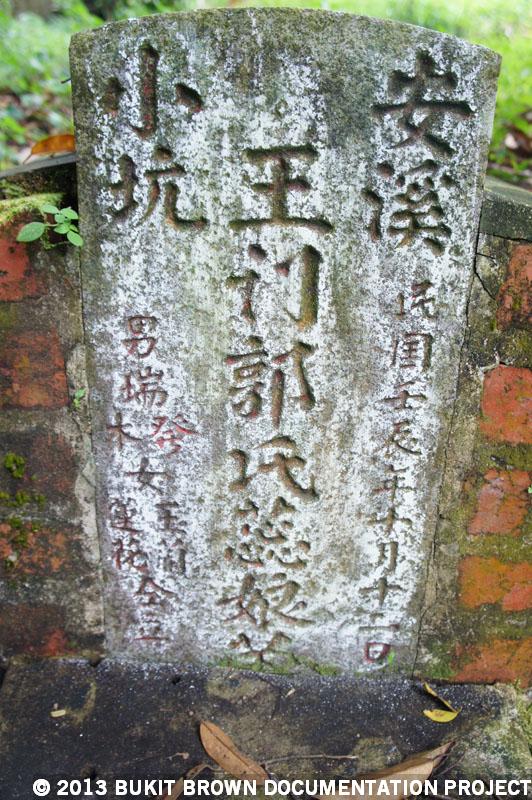 安溪
民国壬辰年十月十一日
王门郭氏蕊娘
小坑
男瑞發木
女玉
蓮花
仝立
© 2013 BUKIT BROWN DOCUMENTATION PROJECT